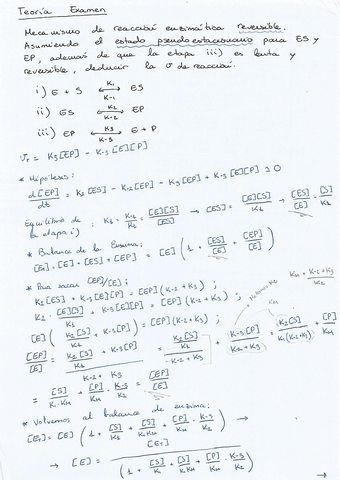 Teoría Examen
Mecanismo de reacción enzimática reversible.
Asumiendo el estado pseudoestacionario para ES y
EP, además de que la etapa iii) es lenta y
reversible, deducir la v de reacción.
i) E + S ⇄ ES K1 K-1
ii) ES ⇄ EP K2 K-2
iii) EP ⇄ E + P K3 K-3
Vr = K3[EP] - K-3[E][P]
* Hipótesis:
d[EP]/dt = K2[ES] - K-2[EP] - K3[EP] + K-3[E][P] = 0
Equilibrio de la etapa i) : K1 = K-1/K1 = [E][S]/[ES] → [ES] = [E][S]/K1 → [ES]/[E] = [S]/K1
* Balance de la Enzima:
[ET] = [E] + [ES] + [EP] = [E] (1 + [ES]/[E] + [EP]/[E])
* Para sacar [EP]/[E]:
K2[ES] + K-3[E][P] = [EP](K-2 + K3) ;
K2 · [E][S]/K1 + K-3[E][P] = [EP](K-2 + K3) ;
KM = K-2 + K3/K2
[E] (K2[S]/K1 + K-3[P]) = [EP](K-2 + K3) ;
[EP]/[E] = K2[S]/K1 + K-3[P] / K-2 + K3 = K2[S]/K1 / K-2 + K3 + K-3[P]/K-2 + K3 K2[S]/K1(K-2 + K3) + [P]/KM
= [S]/K1·KM + [P]/KM · K-3/K2 = [EP]/[E]
* Volvemos al balance de enzima:
[ET] = [E] (1 + [S]/K1 + [S]/K1KM + [P]/KM · K-3/K2) →
→ [E] = [ET] / (1 + [S]/K1 + [S]/K1KM + [P]/KM · K-3/K2) →